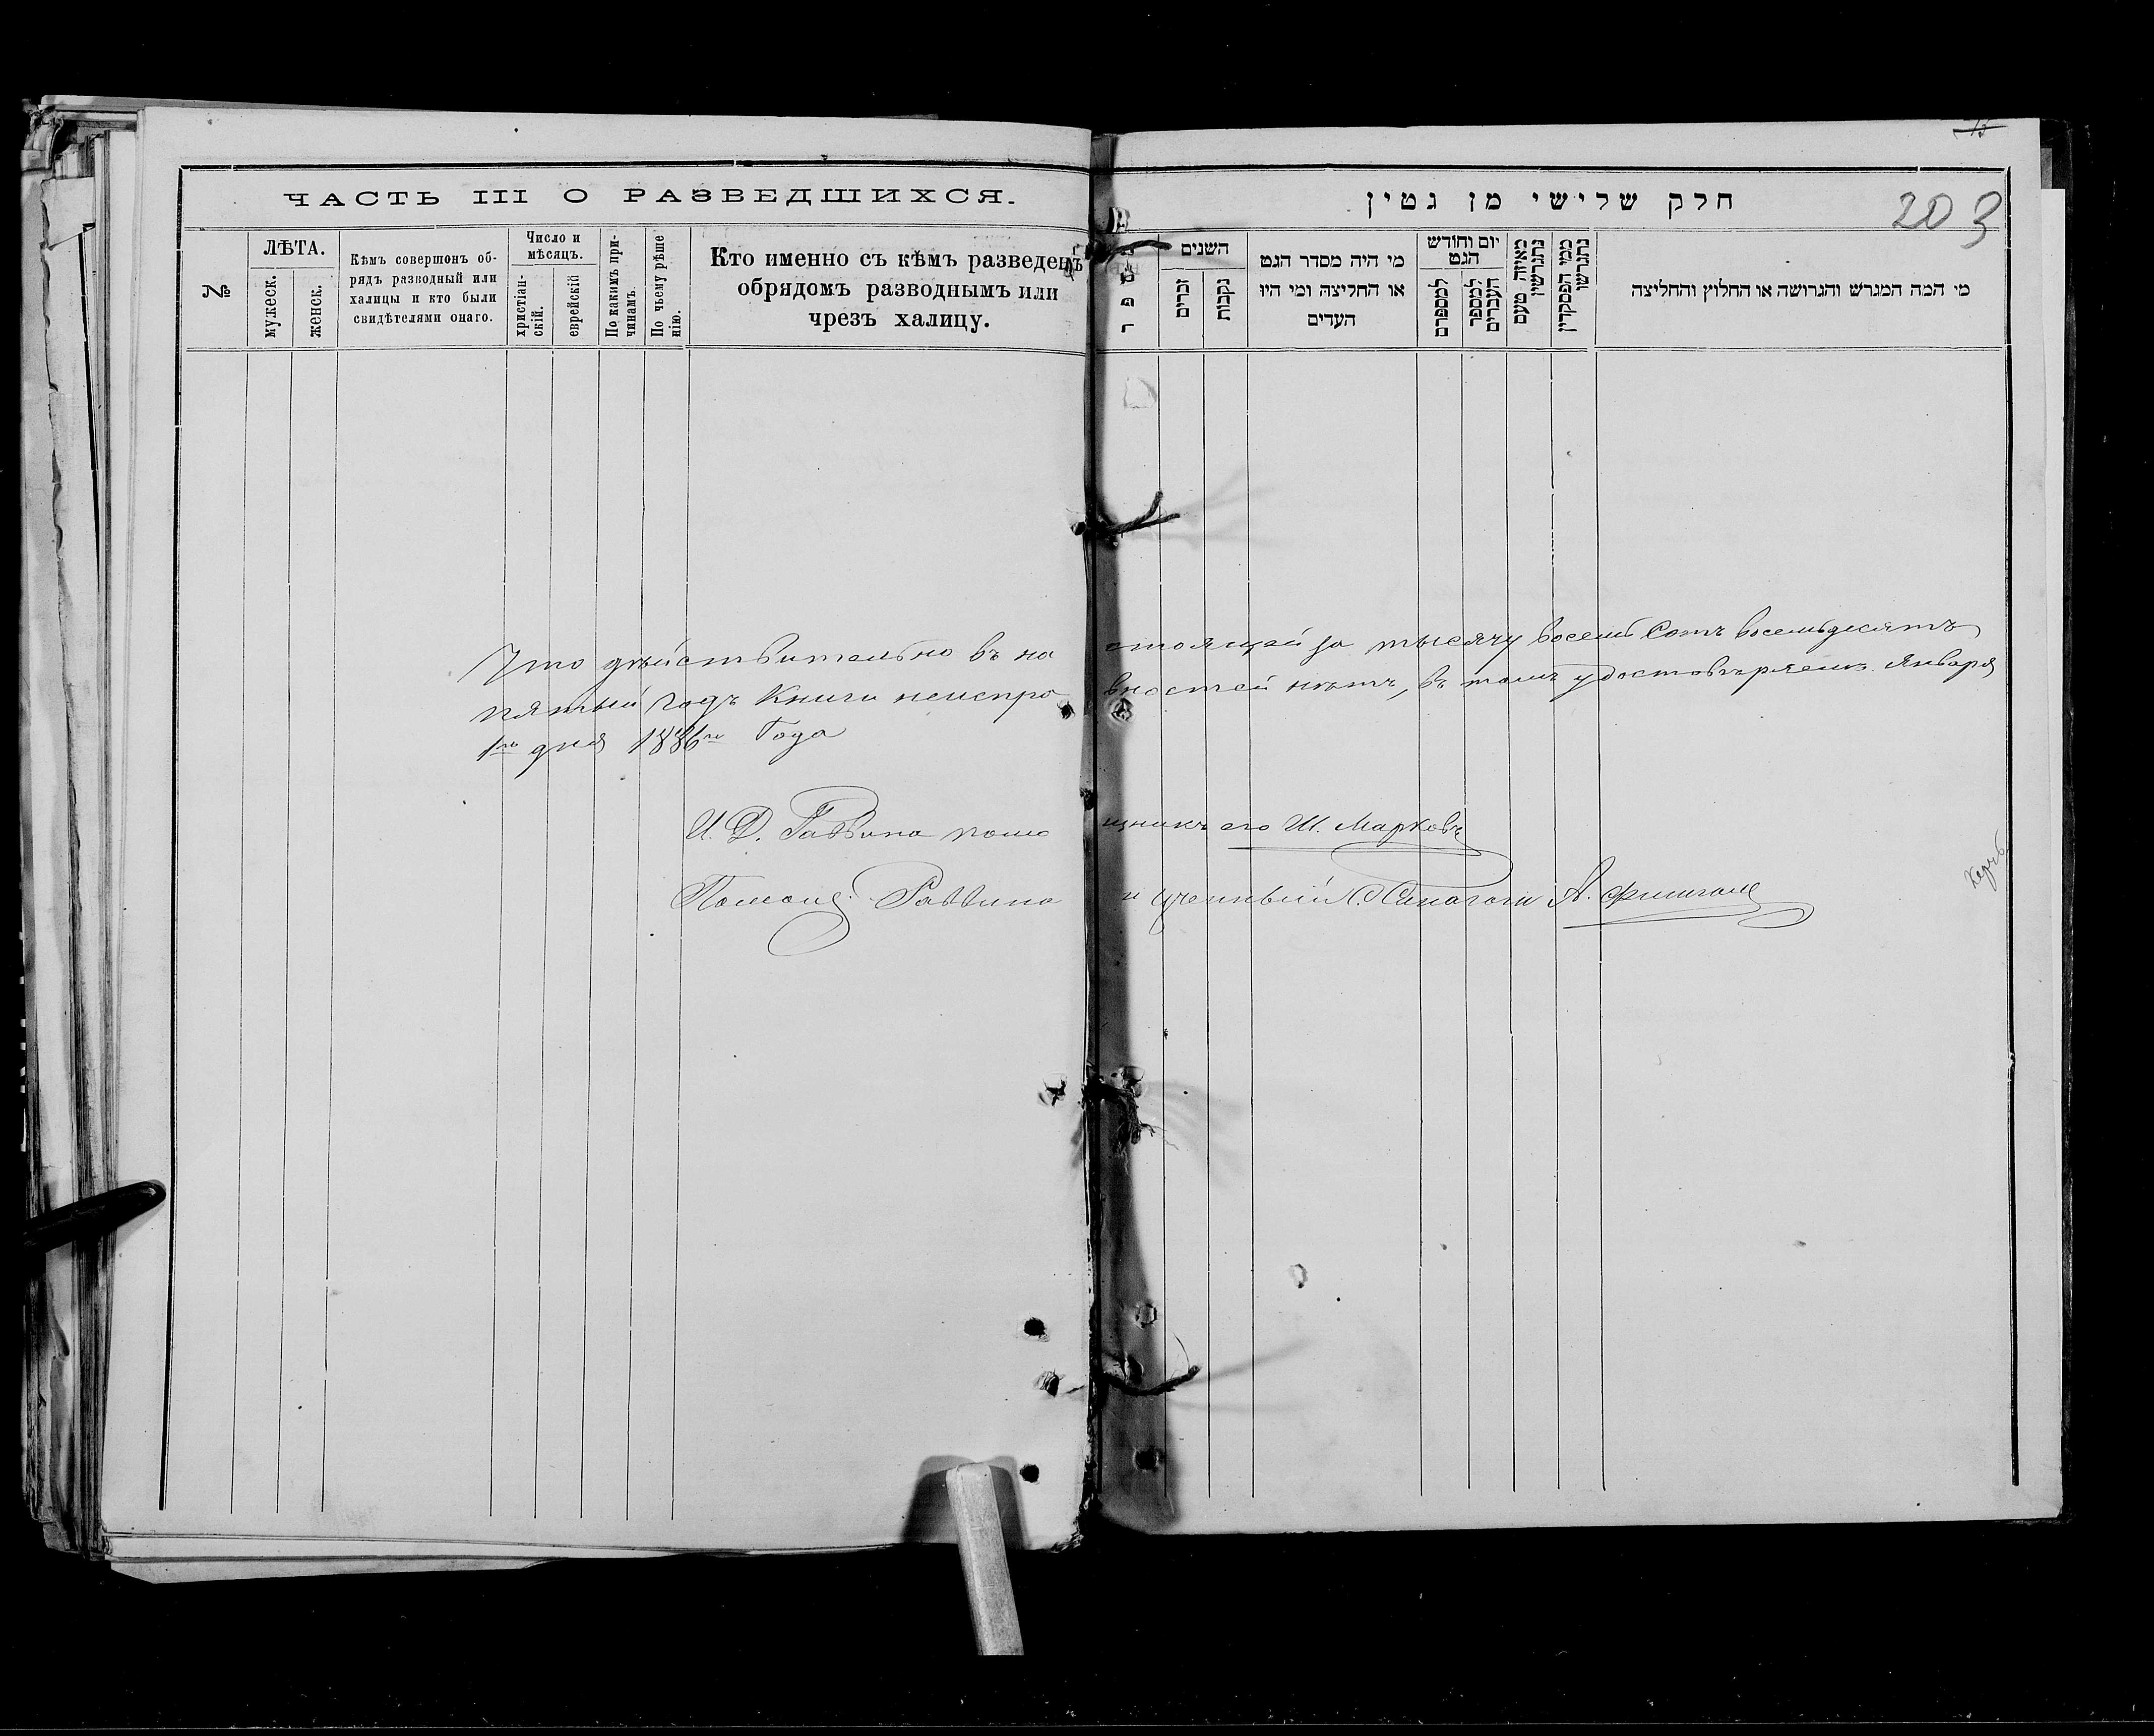 ЧАСТЬ III О РАЗВЕДШИХСЯ.
№
ЛѢТА.
мужеск.
женск.
Кѣмъ совершонъ об-
рядъ разводный или
халицы и кто были
свидѣтелями онаго.
Число и
мѣсяцъ.
христіан-
скій.
еврейскій
По какимъ при-
чинамъ.
По чьему рѣше
нію.
Кто именно съ кѣмъ разведенъ
обрядомъ разводнымъ или
чрезъ халицу.
חלק שלישי מן גטין
203
השנים
זכרים
נקבות
מי היה מסדר הגט
או החליצה ומי היו
העדים
יום וחודש
הגט
למספרם
למספר
העברים
מאיזה טעם
נתגרשין
ממי הפסקדין
נתגרשו
מי המה המגרש והגרושה או החלוץ והחליצה
Что дѣйствительно въ настоящей за тысячу восемь сотъ восемьдесятъ
пятый годъ книги неисправностей нѣтъ, въ томъ удостовѣряемъ. Января
1го дня 1886го Года
И. Д. Раввина помощникъ его Ш. Марковъ
Помощ. Раввина и ученный С. Синагоги А.
Керчь